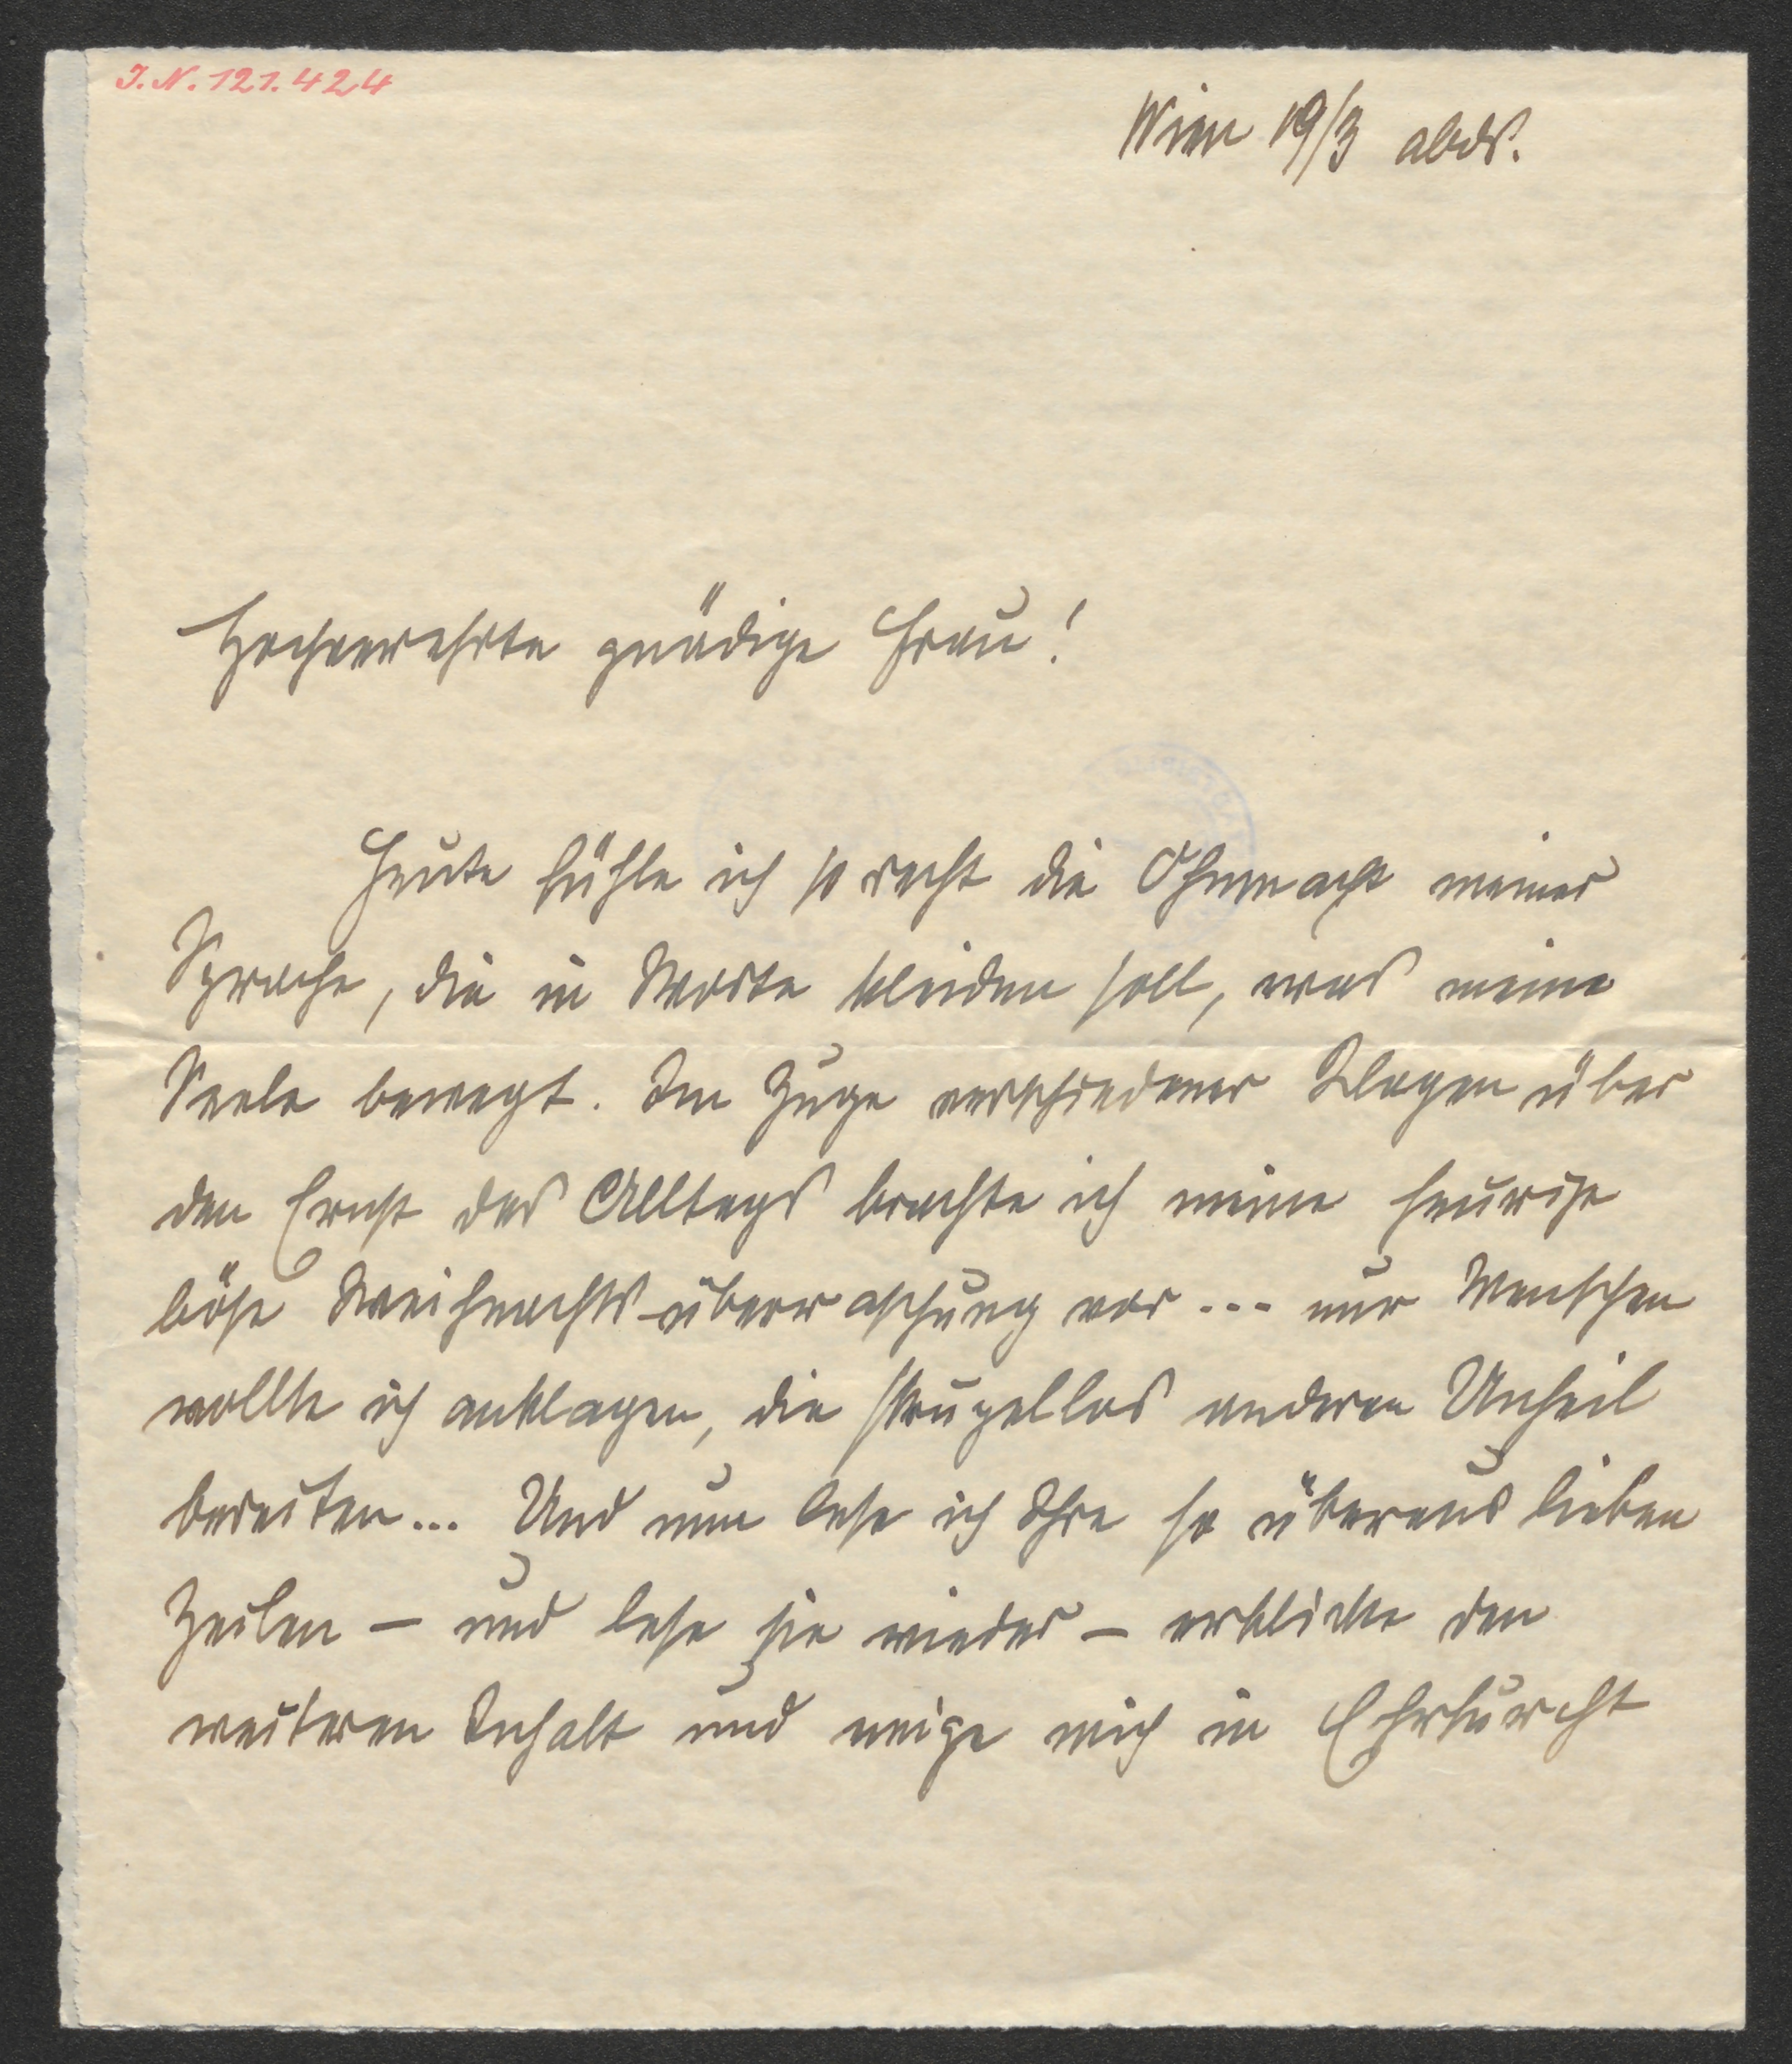 J.N. 121.424
Wien 19/3 abds.
Hochverehrte gnädige Frau!
Heute fühle ich so recht die Ohnmacht meiner
Sprache, die in Worte kleiden soll, was meine
Seele bewegt. Im Zuge verschiedener Klagen über
den Ernst des Alltags brachte ich meine heurige
böse Weihnachts-überraschung vor... nur Menschen
wollte ich anklagen, die skrupellos anderen Unheil
bereiten... Und nun lese ich Ihre so überaus lieben
Zeilen – und lese sie wieder – erblicke den
weiteren Inhalt und neige mich in Ehrfurcht